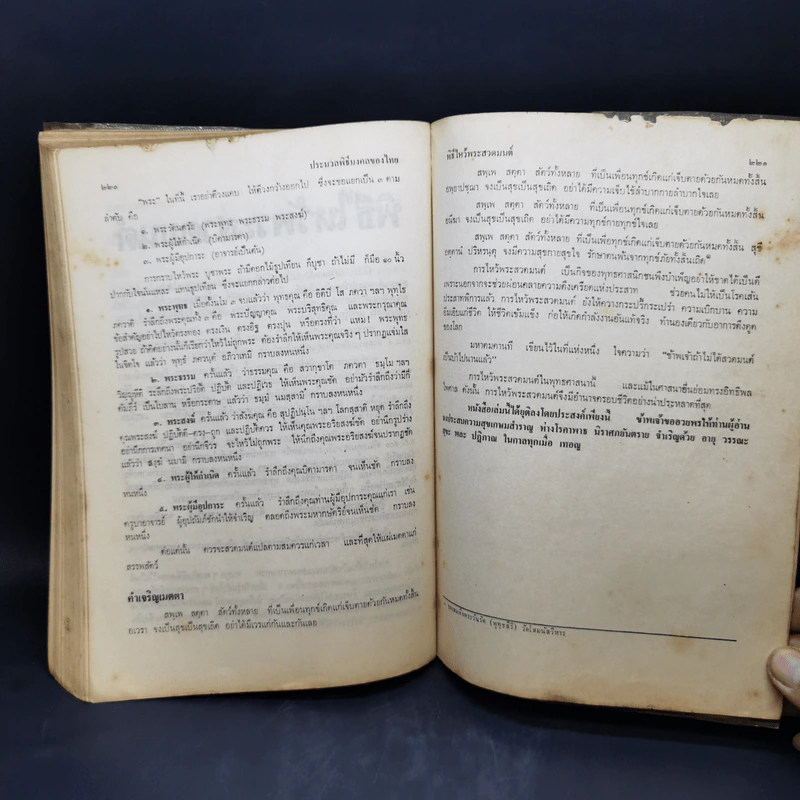 ๒๒๐
ประมวลพิธีมงคลของไทย
"พระ" ในที่นี้ เราอย่าตีวงแคบ ให้ตีวงกว้างออกไป ซึ่งจะขอแยกเป็น ๓ ตาม
ลำดับ คือ
๑. พระรัตนตรัย (พระพุทธ พระธรรม พระสงฆ์)
๒. พระผู้ให้กำเนิด (บิดามารดา)
๓. พระผู้มีอุปการะ (อาจารย์เป็นต้น)
การกราบไหว้พระ บูชาพระ ถ้ามีดอกไม้ธูปเทียน ก็บูชา ถ้าไม่มี ก็มือ ๑๐ นิ้ว
ปากกับใจนั่นแหละ แทนธูปเทียน ซึ่งจะแยกกล่าวต่อไป
๑. พระพุทธ เมื่อตั้งนโม ๓ จบแล้วว่า พุทธคุณ คือ อิติปิ โส ภควา ฯลฯ พุทฺโธ
ภควาติ รำลึกถึงพระคุณทั้ง ๓ คือ พระปัญญาคุณ พระบริสุทธิคุณ และพระกรุณาคุณ
ข้อสำคัญอย่าไปไหว้ตรงทอง ตรงเงิน ตรงอิฐ ตรงปูน หรือตรงที่ว่า แหม! พระพุทธ
รูปสวย ถ้าติดอย่างนั้นก็เรียกว่าไหว้ไม่ถูกพระ ต้องรำลึกให้เห็นพระคุณจริง ๆ ปรากฏแจ่มใส
ในจิตใจ แล้วว่า พุทฺธํ ภควนฺตํ อภิวาเทมิ กราบลงหนหนึ่ง
๒. พระธรรม ครั้นแล้ว ว่าธรรมคุณ คือ สฺวากฺขาโต ภควตา ธมฺโม ฯลฯ
วิญฺญูหีติ ระลึกถึงพระปริยัติ ปฏิบัติ และปฏิเวธ ให้เห็นพระคุณชัด อย่ามัวรำลึกถึงว่ามีที่
คัมภีร์ เป็นใบลาน หรือกระดาษ แล้วว่า ธมฺมํ นมสฺสามิ กราบลงหนหนึ่ง
๓. พระสงฆ์ ครั้นแล้ว ว่าสังฆคุณ คือ สุปฏิปนฺโน ฯลฯ โลกสฺสาติ หยุด รำลึกถึง
คุณพระสงฆ์ ปฏิบัติดี-ตรง-ถูก และปฏิบัติควร ให้เห็นพระคุณพระอริยสงฆ์จริง ๆ อย่านึกรูปร่าง
อย่านึกการเทศนา อย่านึกจีวร จะไหว้ไม่ถูกพระ ให้นึกถึงพระคุณพระอริยสงฆ์จนปรากฏชัด
แล้วว่า สงฺฆํ นมามิ กราบลงหนหนึ่ง
๔. พระผู้ให้กำเนิด ครั้นแล้ว รำลึกถึงคุณบิดามารดา จนเห็นชัด กราบลง
หนหนึ่ง
๕. พระผู้มีอุปการะ ครั้นแล้ว รำลึกถึงคุณท่านผู้มีอุปการะคุณแก่เรา เช่น
ครูบาอาจารย์ ผู้อุปถัมภ์ชักนำให้จำเริญ ตลอดถึงพระมหากษัตริย์จนเห็นชัด กราบลง
หนหนึ่ง
ต่อแต่นั้น ควรจะสวดมนต์แปลตามสมควรแก่เวลา และที่สุดให้แผ่เมตตาแก่
สรรพสัตว์
คำเจริญเมตตา
สพฺเพ สตฺตา สัตว์ทั้งหลาย ที่เป็นเพื่อนทุกข์เกิดแก่เจ็บตายด้วยกันหมดทั้งสิ้น
อเวรา จงเป็นสุขเป็นสุขเถิด อย่าได้มีเวรแก่กันและกันเลย
พิธีไหว้พระสวดมนต์
๒๒๑
สพฺเพ สตฺตา สัตว์ทั้งหลาย ที่เป็นเพื่อนทุกข์เกิดแก่เจ็บตายด้วยกันหมดทั้งสิ้น
อพฺยาปชฺฌา จงเป็นสุขเป็นสุขเถิด อย่าได้มีความเจ็บไข้ลำบากกายลำบากใจเลย
สพฺเพ สตฺตา สัตว์ทั้งหลาย ที่เป็นเพื่อนทุกข์เกิดแก่เจ็บตายด้วยกันหมดทั้งสิ้น
อนีฆา จงเป็นสุขเป็นสุขเถิด อย่าได้มีความทุกข์กายทุกข์ใจเลย
สพฺเพ สตฺตา สัตว์ทั้งหลาย ที่เป็นเพื่อทุกข์เกิดแก่เจ็บตายด้วยกันหมดทั้งสิ้น สุขี
อตฺตานํ ปริหรนฺตุ จงมีความสุขกายสุขใจ รักษาตนพ้นจากทุกข์ภัยทั้งสิ้นเถิด"
การไหว้พระสวดมนต์ เป็นกิจของพุทธศาสนิกชนพึงบำเพ็ญอย่าให้ขาดได้เป็นดี
เพราะนอกจากจะช่วยผ่อนคลายความตึงเครียดแห่งประสาท ช่วยคนไม่ให้เป็นโรคเส้น
ประสาทพิการแล้ว การไหว้พระสวดมนต์ ยังให้ความกระปรี้กระเปร่า ความเบิกบาน ความ
อิ่มเอิบแก่ชีวิต ให้ชีวิตเข้มแข็ง ก่อให้เกิดกำลังงานอันแท้จริง ทำนองเดียวกับอาการดึงดูด
ของโลก
มหาตมคานที เขียนไว้ในที่แห่งหนึ่ง ใจความว่า "ข้าพเจ้าถ้าไม่ได้สวดมนต์
เป็นบ้าไปนานแล้ว"
การไหว้พระสวดมนต์ในพุทธศาสนานี้ และแม้ในศาสนาอื่นย่อมทรงอิทธิพล
ไพศาล ดังนั้น การไหว้พระสวดมนต์จึงมีอำนาจครอบชีวิตอย่างน่าประหลาดที่สุด
หนังสือเล่มนี้ได้ยุติลงโดยประสงค์เพียงนี้ ข้าพเจ้าขออวยพรให้ท่านผู้อ่าน
จงประสบความสุขเกษมสำราญ ห่างโรคาพาธ นิราศภยันตราย จำเริญด้วย อายุ วรรณะ
สุขะ พละ ปฏิภาณ ในกาลทุกเมื่อ เทอญ
(พุทฺธสิริ) วัดโสมนัสวิหาร